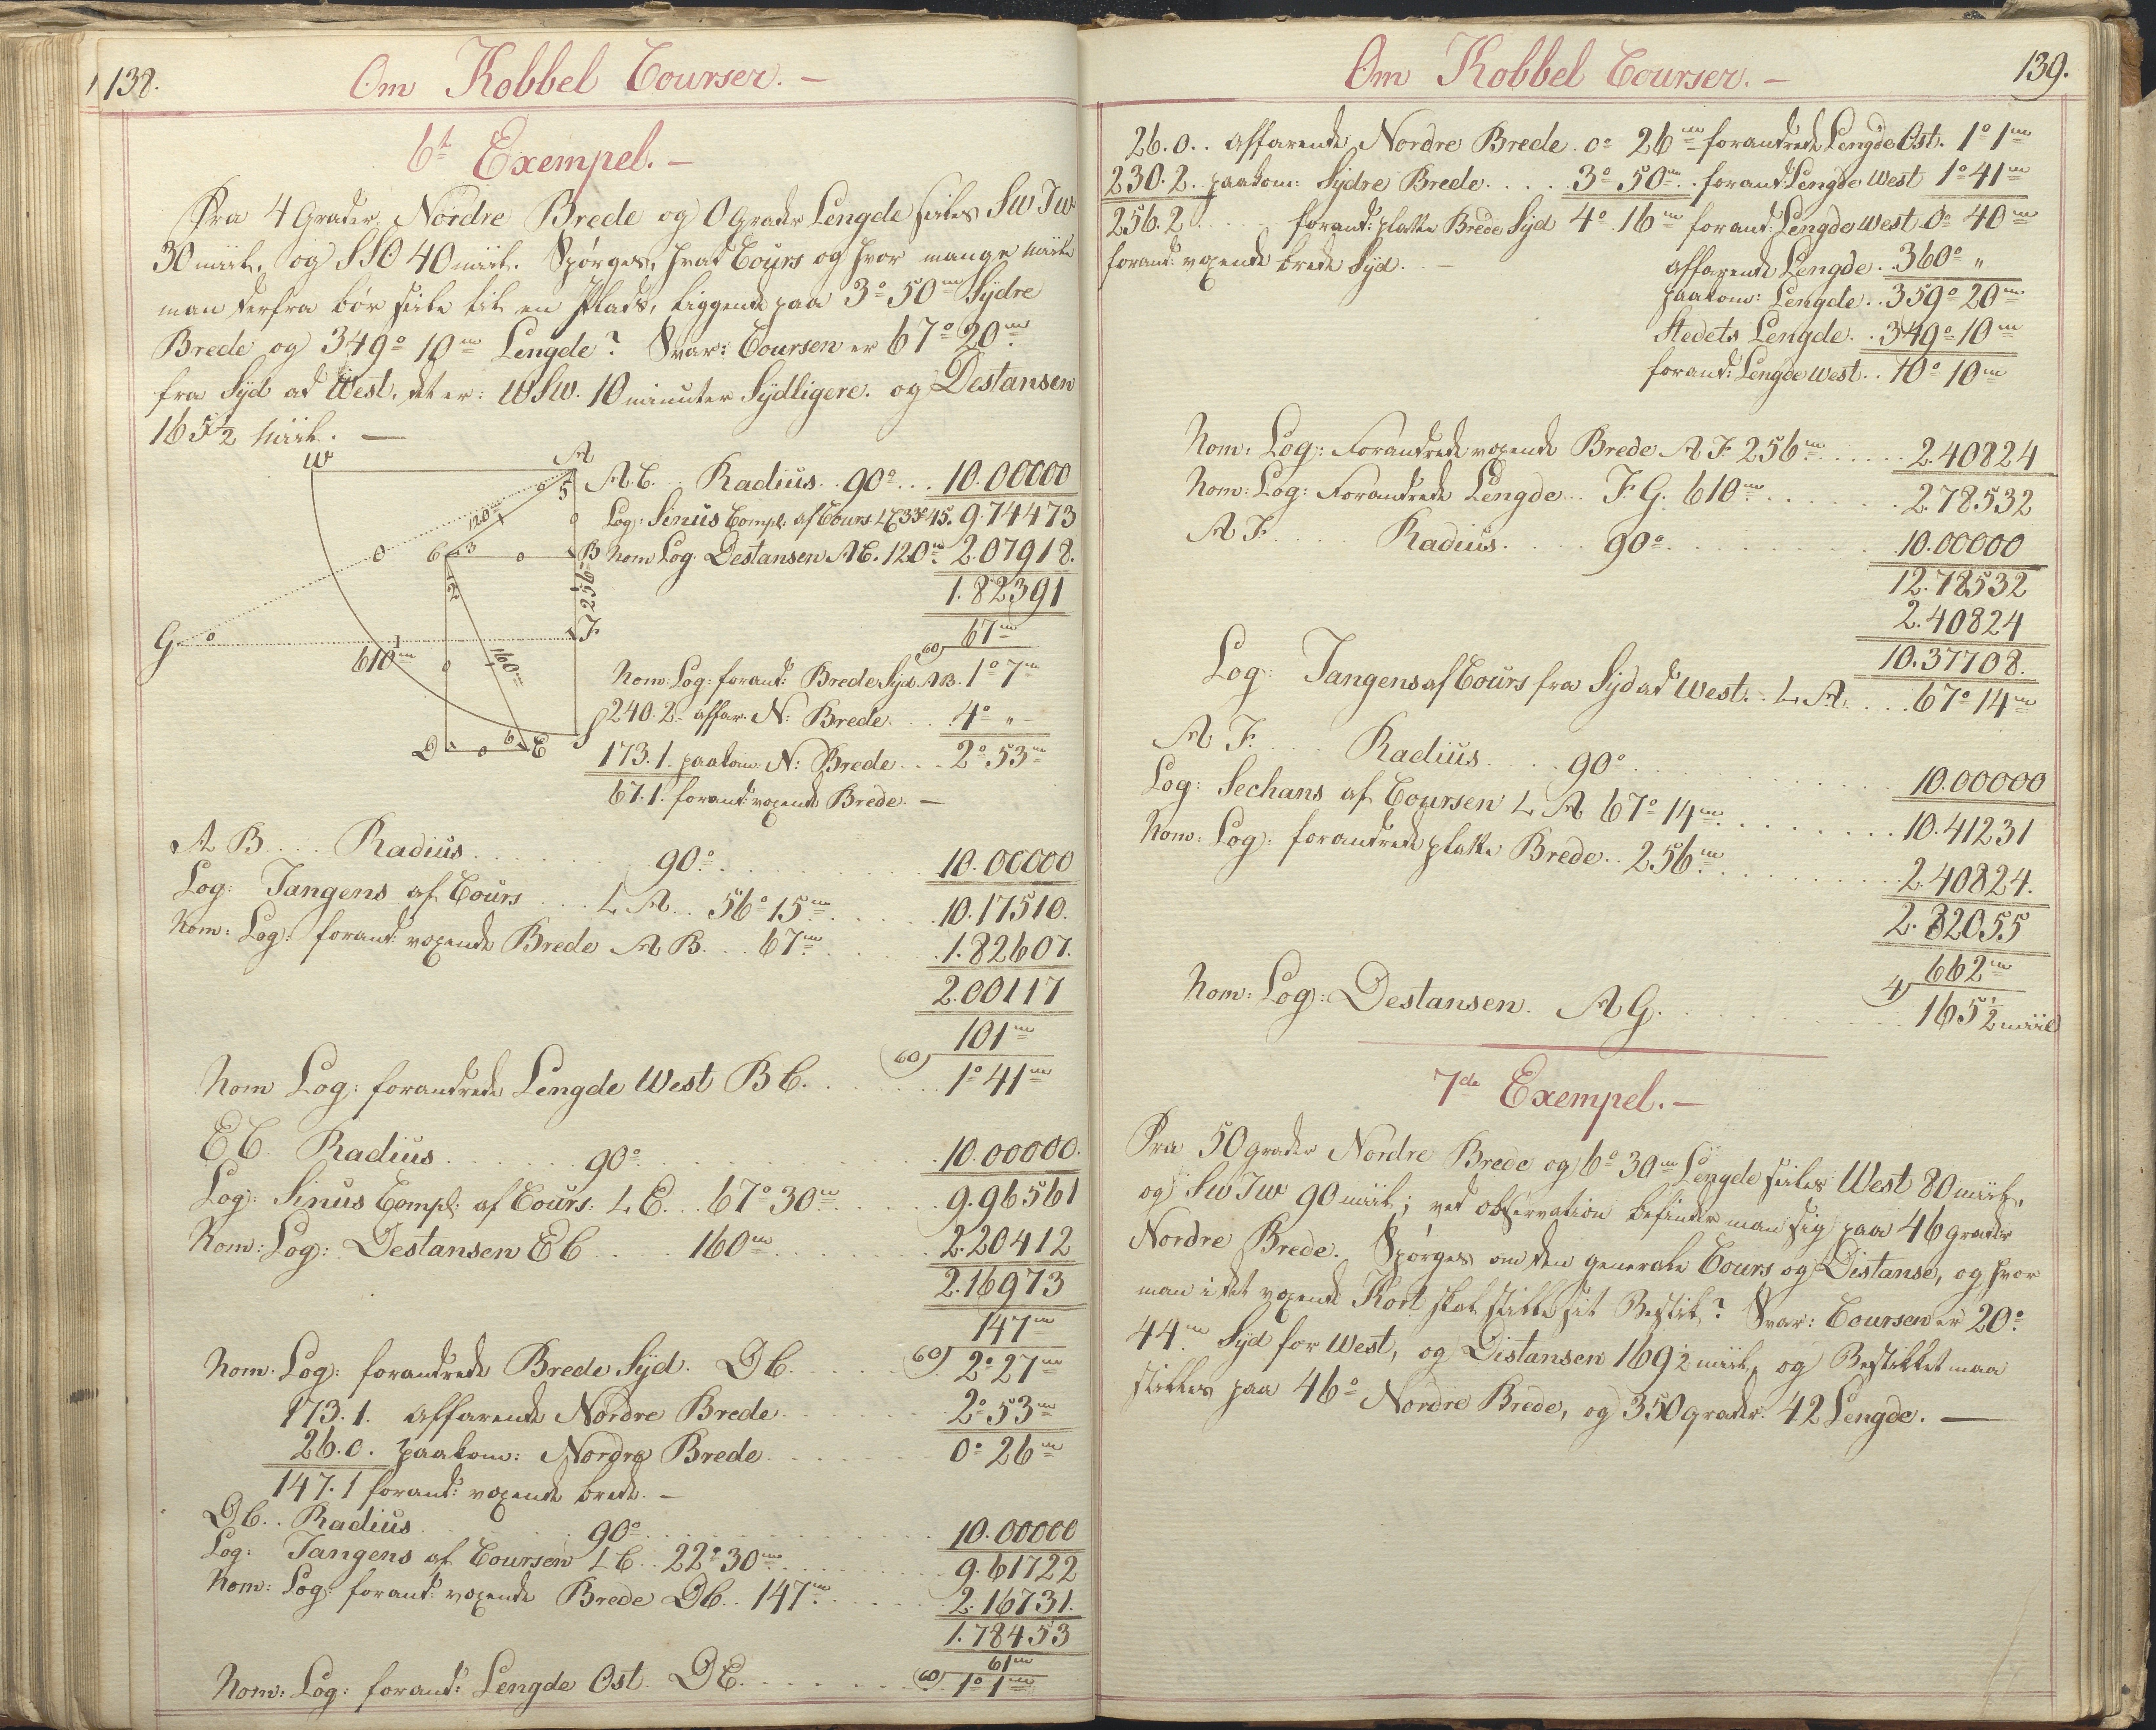 138.
Om Kobbel Courser. —
6te Exempel. —
Fra 4 Grader Nordre Brede og 0 Grader Lengde seiles SWTW
30 miil. og SSO 40 miil. Spørges, hvad Cours og hvor mange miile
man derfra bør seile til en Plads, liggende paa 3° 50m Sÿdre
Brede og 349° 10m Lengde? Svar: Coursen er 67° 20m
fra Sÿd ad West, det er: WSW. 10 minuter Sÿdligere. og Destansen
165½ miil. —
W
A
5
120m
C
3
0
B
2
256
G
0
1
F
610m
0
160m
D
0
6
E
S
A.C. Radius. 90° . . . 10.00000
Log: Sinus Compl: af Cours LC 33° 45. 9.74473
Nom Log. Destansen AC. 120m 2.07918.
1.82391
60) 67m
Nom: Log: forand: Brede Sÿd AB. 1° 7m
240.2. affar. N: Brede . . . 4° „ —
173.1. paakom: N: Brede . . . 2° 53m
67.1. forand: voxende Brede. —
A B . . . Radius . . . 90° . . . 10.00000
Log: Tangens af Cours . . . L A . . 56° 15m . . . 10.17510.
Nom: Log: forand: voxende Brede A B . . . 67m . . . 1.82607.
2.00117
60) 101m
Nom Log: forandrede Lengde West B C. . . . 1° 41m
E C. Radius . . . 90° . . . 10.00000.
Log: Sinus Compl: af Cours: L E. . . 67° 30m . . . 9.96561
Nom: Log: Destansen E C . . . 160m . . . 2.20412
2.16973
147m
Nom. Log: forandrede Brede Sÿd. D C. . . . 60) 2° 27m
173.1. affarende Nordre Brede . . . 2° 53m
26.0. paakom: Nordre Brede . . . 0° 26m
147.1 forand: voxende brede. —
D C. . Radius . . . 90° . . . 10.00000
Log: Tangens af Coursen L C . . 22° 30m . . . 9.61722
Nom: Log: forand: voxende Brede D C. . 147m . . . 2.16731.
1.78453
61m
Nom: Log: forand: Lengde Ost. D E. . . . 60) 1° 1m
Om Kobbel Courser. —
139.
26.0. . affarende Nordre Brede. 0° 26m forandrede Lengde Ost. 1° 1m
230.2. paakom: Sÿdre Brede. . . . 3° 50m. . forand: Lengde West 1° 41m
256.2. . . . forand: platte Brede Sÿd 4° 16m forand: Lengde West 0° 40m
forand: voxende brede Sÿd. —
affarende Lengde. . 360° „
paakom: Lengde. . 359° 20m
Stedets Lengde. . 349° 10m
forand: Lengde West. . 10° 10m
Nom: Log: Forandrede voxende Brede A F 256m . . . 2.40824
Nom: Log: Forandrede Lengde. . F G. 610m . . . 2.78532
A F. . . . Radius . . . 90° . . . 10.00000
12.78532
2.40824
10.37708.
Log: Tangens af Cours fra Sÿd ad West. . L A. . . . 67° 14m
A F. . . Radius . . . 90° . . . 10.00000
Log: Sechans af Coursen L A 67° 14m . . . 10.41231
Nom: Log: forandrede platte Brede. . 256m . . . 2.40824.
2.82055
662m
Nom: Log: Destansen. A G. . . . 4) 165½ miil
7de Exempel. —
Fra 50 grader Nordre Brede og 6° 30m Lengde seiles West 80 miil,
og SWTW 90 miil; ved observation befinder man sig paa 46 grader
Nordre Brede. Spørges om den generale Cours og Distanse, og hvor
man i det voxende Kort skal stikke sit Bestik? Svar: Coursen er 20°
44m Sÿd for West, og Distansen 169½ miil, og Bestikket maa
stikkes paa 46° Nordre Brede, og 350 grader 42 Lengde. —